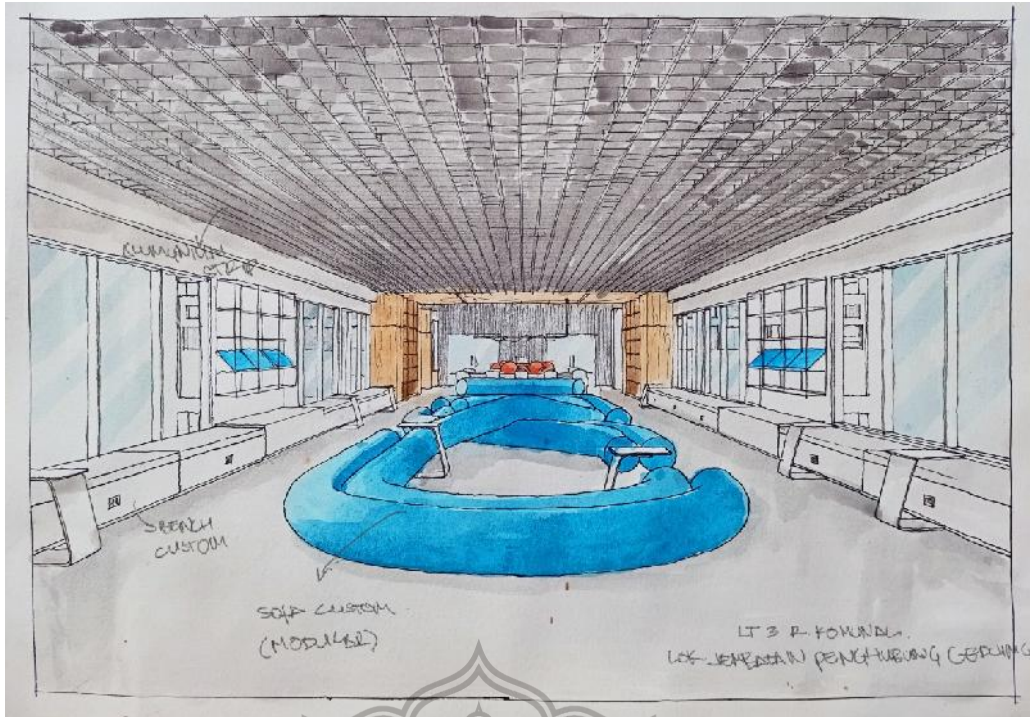 ALUMUNIUM
STRIP
BENCH
CUSTOM
SOFA CUSTOM
(MODULAR)
LT 3 R. KOMUNAL.
LOK. JEMBATAN PENGHUBUNG GEDUNG